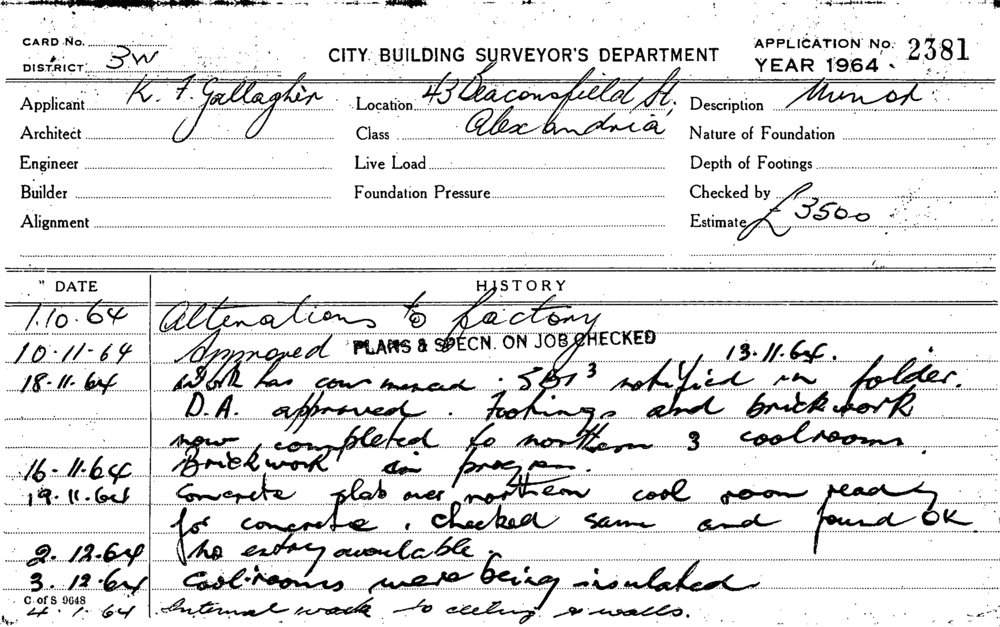 CARD No.
DISTRICT 3W
CITY BUILDING SURVEYOR'S DEPARTMENT
APPLICATION No. 2381
YEAR 1964
Applicant K. F. Gallagher
Location 43 Beaconsfield St,
Description Minor
Architect
Class Alexandria
Nature of Foundation
Engineer
Live Load
Depth of Footings
Builder
Foundation Pressure
Checked by
Alignment
Estimate £3500
DATE HISTORY
1.10.64 Alterations to factory
10.11.64 Approved PLANS & SPECN. ON JOB CHECKED 13.11.64.
18.11.64 Work has commenced. notified in folder.
D.A. approved. Footings and brickwork
now completed to northern 3 coolrooms.
16.11.64 Brickwork in progress.
19.11.64 Concrete slab over northern cool room ready
for concrete. Checked same and found OK
2.12.64 No entry available.
3.12.64 Cool-rooms were being insulated
C of S 9648
4.1.64 Internal work to ceiling & walls.